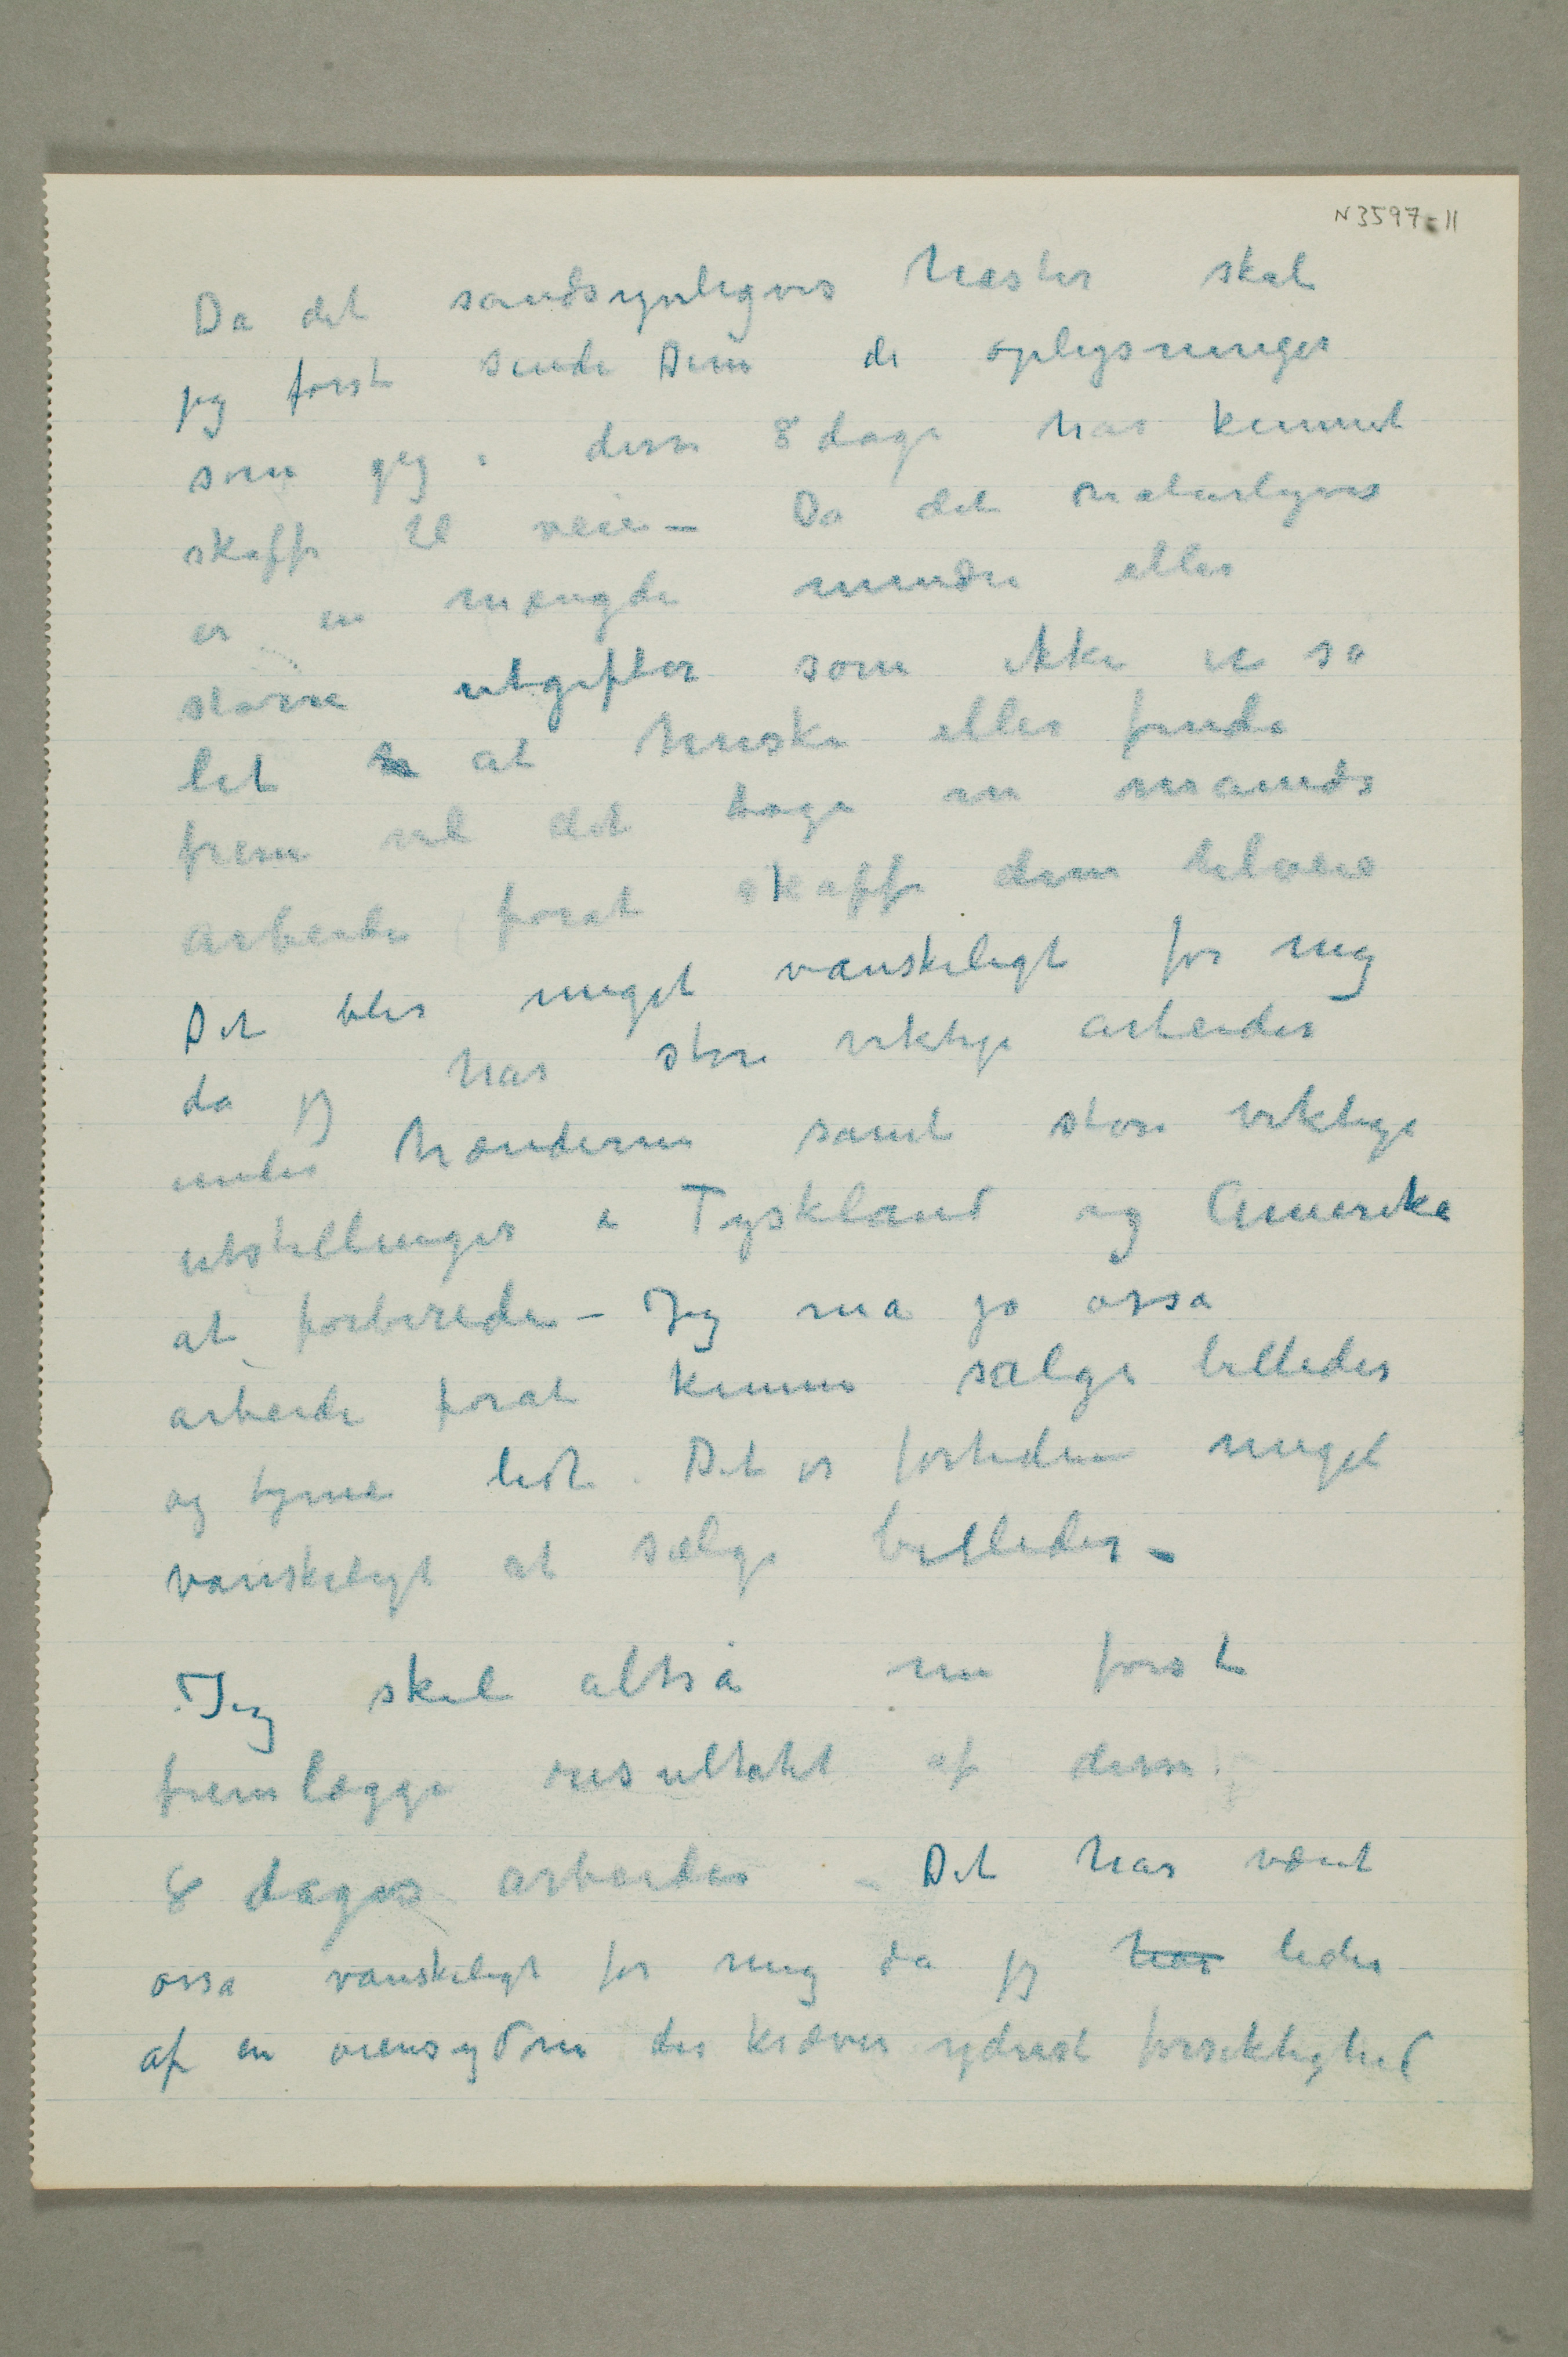 N 3597-11
Da det sandsynligvis haster skal
jeg først sende Dem de oplysninger
som jeg i disse 8 dage har kunnet
skaffe til veie – Da det naturligvis
er en mængde mindre eller
større utgifter som ikke er så
let at huske eller finde
frem vil det tage en mands
arbeide forat skaffe dem tilveie
Det blir meget vanskeligt for mig
da jeg har store viktige arbeider
under hænderne samt store viktige
utstillinger i Tyskland og Amerika
at forberede – Jeg må jo osså
arbeide forat kunne sælge billeder
og tjene lidt. Det er fortiden meget
vanskeligt at sælge billeder –
Jeg skal altså nu først
fremlægge resultatet af disse
8 dages arbeider – Det har vært
osså vanskeligt for mig da jeg har lider
af en øiensygdom der kræver ydrest forsiktighed